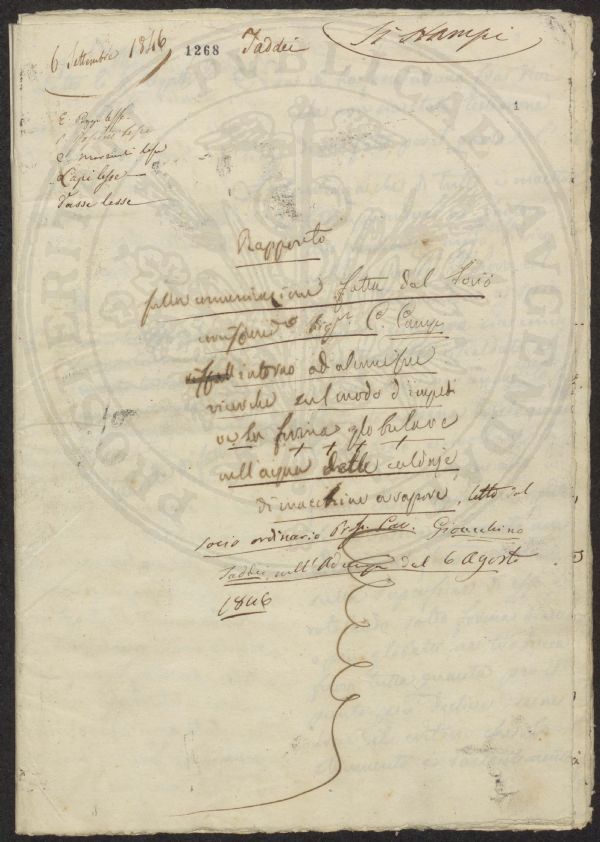 6 Settembre 1846 1268 Taddei Si Stampi
1
E. Poggi lesse
lesse
lesse
Lapi lesse
lesse
Rapporto
sulla comunicazione fatta dal Socio
Sigr. C.
intorno ad alcune sue
ricerche sul modo d'impedi
re la forma globulare
nell'acqua delle caldaje
di macchine a vapore, letto dal
socio ordinario Prof. Cav. Gioacchino
Taddei, nell'Adunza del 6 Agosto
1846
PROSPERITATI PUBLICAE AUGENDAE